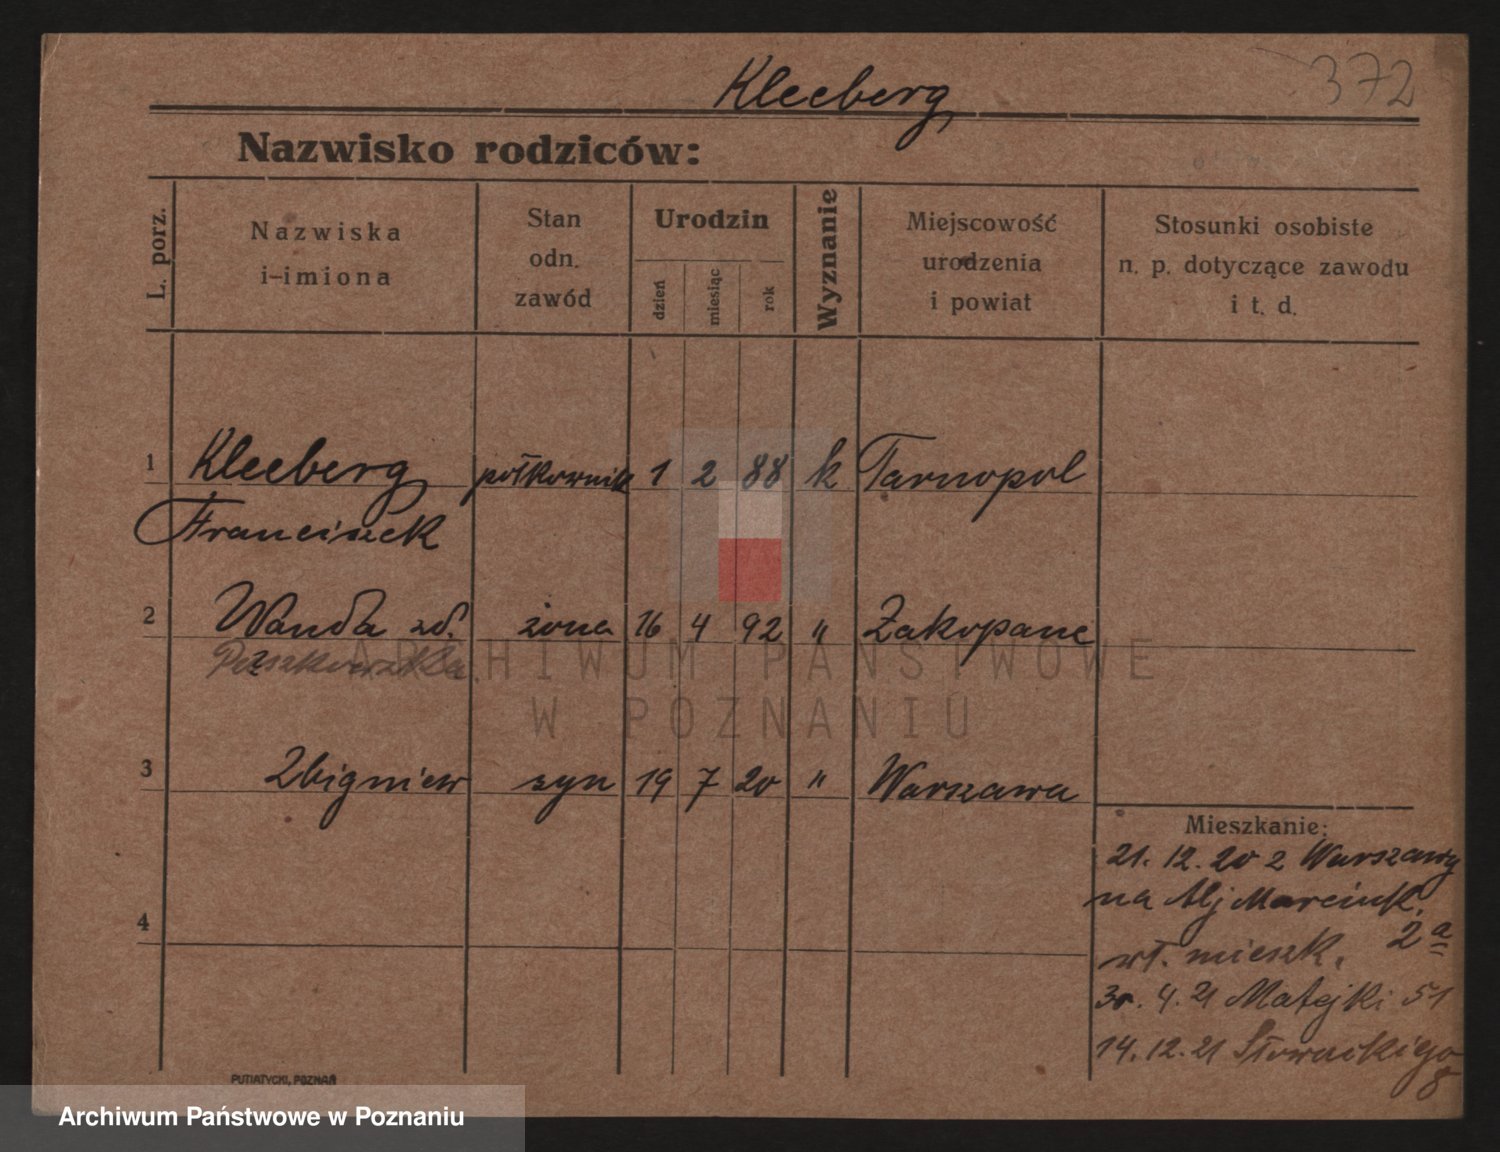 Kleeberg 372
Nazwisko rodziców:
L. porz.
Nazwiska
i-imiona
Stan
odn.
zawód
Urodzin
dzień
miesiąc
rok
Wyznanie
Miejscowość
urodzenia
i powiat
Stosunki osobiste
n. p. dotyczące zawodu
i t. d.
1 Kleeberg półkownik 1 2 88 k Tarnopol
Franciszek
2 Wanda zd. żona 16 4 92 " Zakopane
ARCHIWUM PAŃSTWOWE
W POZNANIU
3 Zbigniew syn 19 7 20 " Warszawa
Mieszkanie:
21. 12. 20 z Warszawy
na Alj Marcink.
2a
wł. mieszk.
30. 4. 21 Matejki 51
14. 12. 21 Słowackiego
8
4
PUTIATYCKI, POZNAŃ
Archiwum Państwowe w Poznaniu